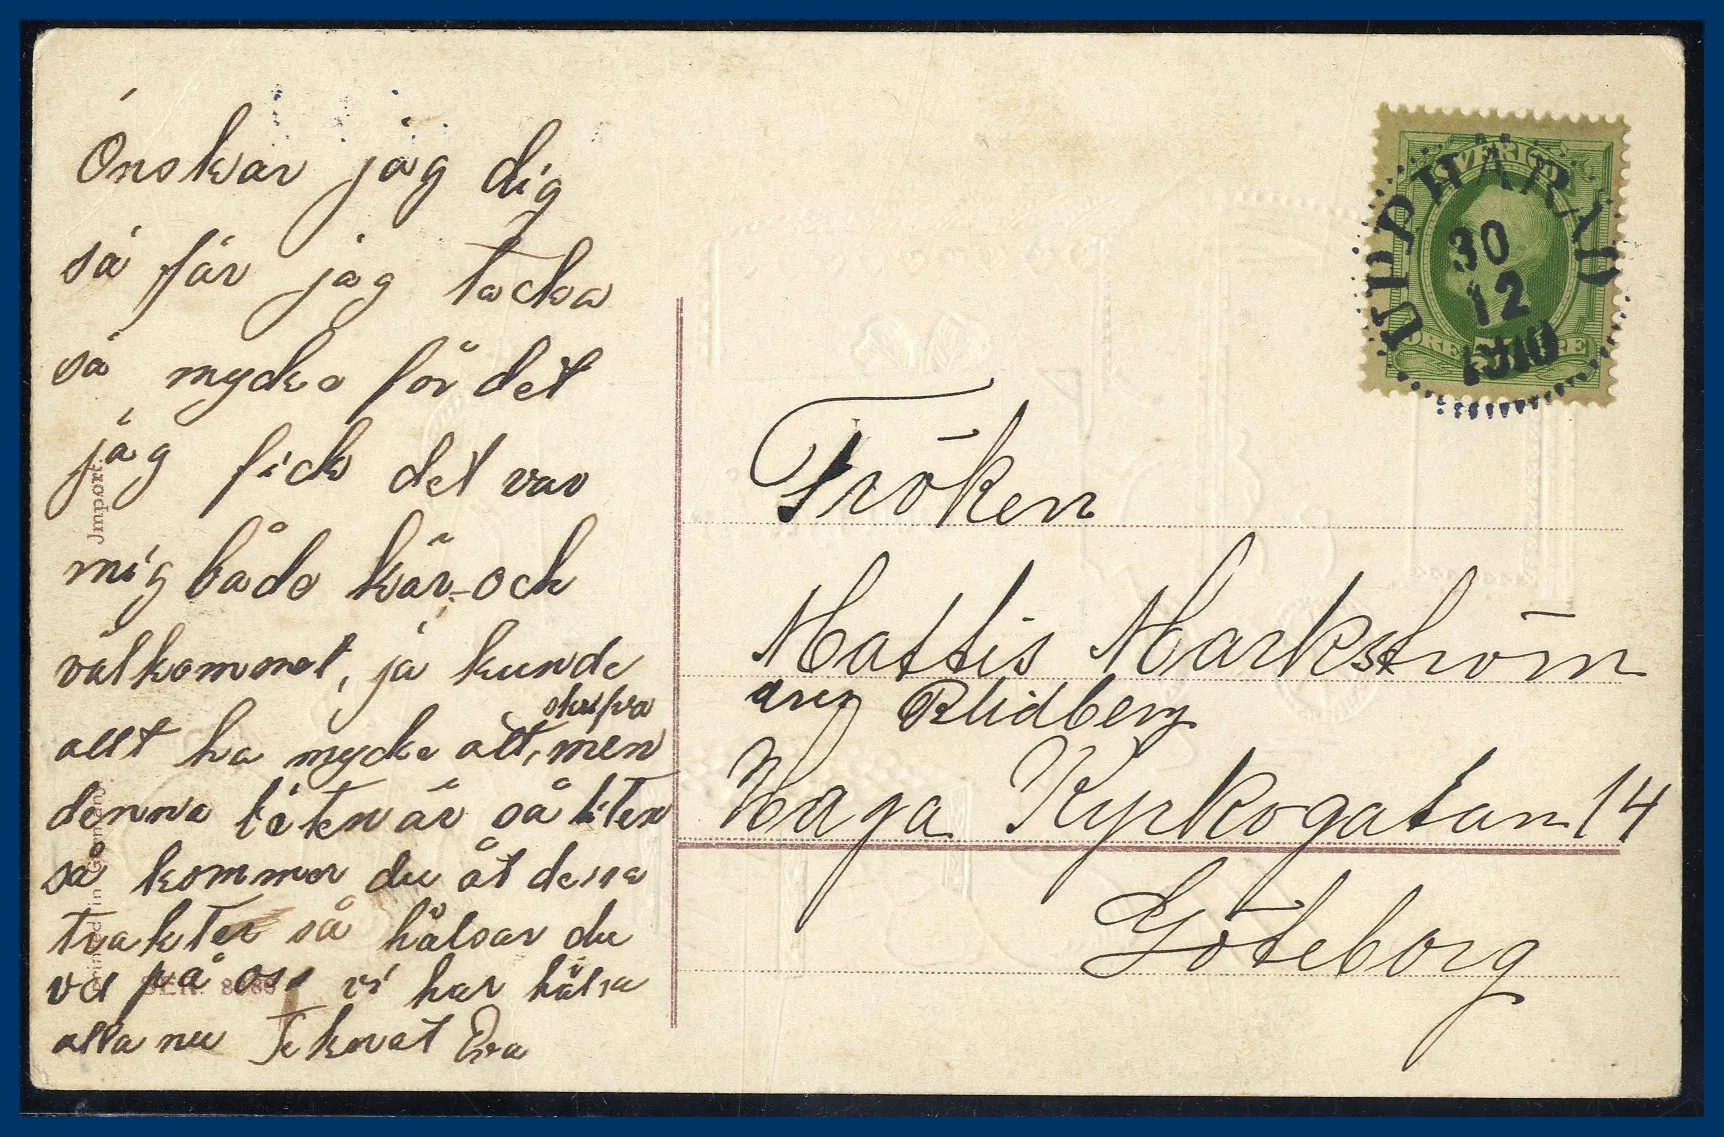 Önskar jag dig
så får jag tacka
så mycke för det
jag fick det var
mig både kär och
välkommet, ja kunde
allt ha mycke att, men
denna liten är så liten
så kommer du åt dessa
trakter så hälsar du
väl på oss vi har hälsa
alla nu Teknat Eva
Import.
Printed in Germany.
SER.
SVERIGE
UPPHÄRAD
30
12
1910
ÖRE
Fröken
Mattis Markström
Blidberg
Haga Kyrkogatan 14
Göteborg